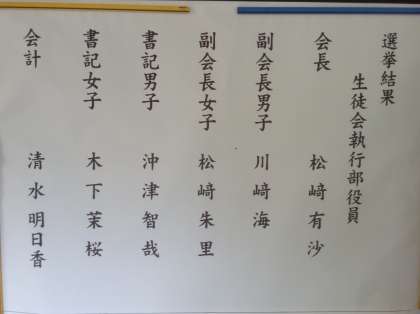 選挙結果
生徒会執行部役員
会長 松﨑有沙
副会長男子 川﨑海
副会長女子 松﨑朱里
書記男子 沖津智哉
書記女子 木下茉桜
会計 清水明日香